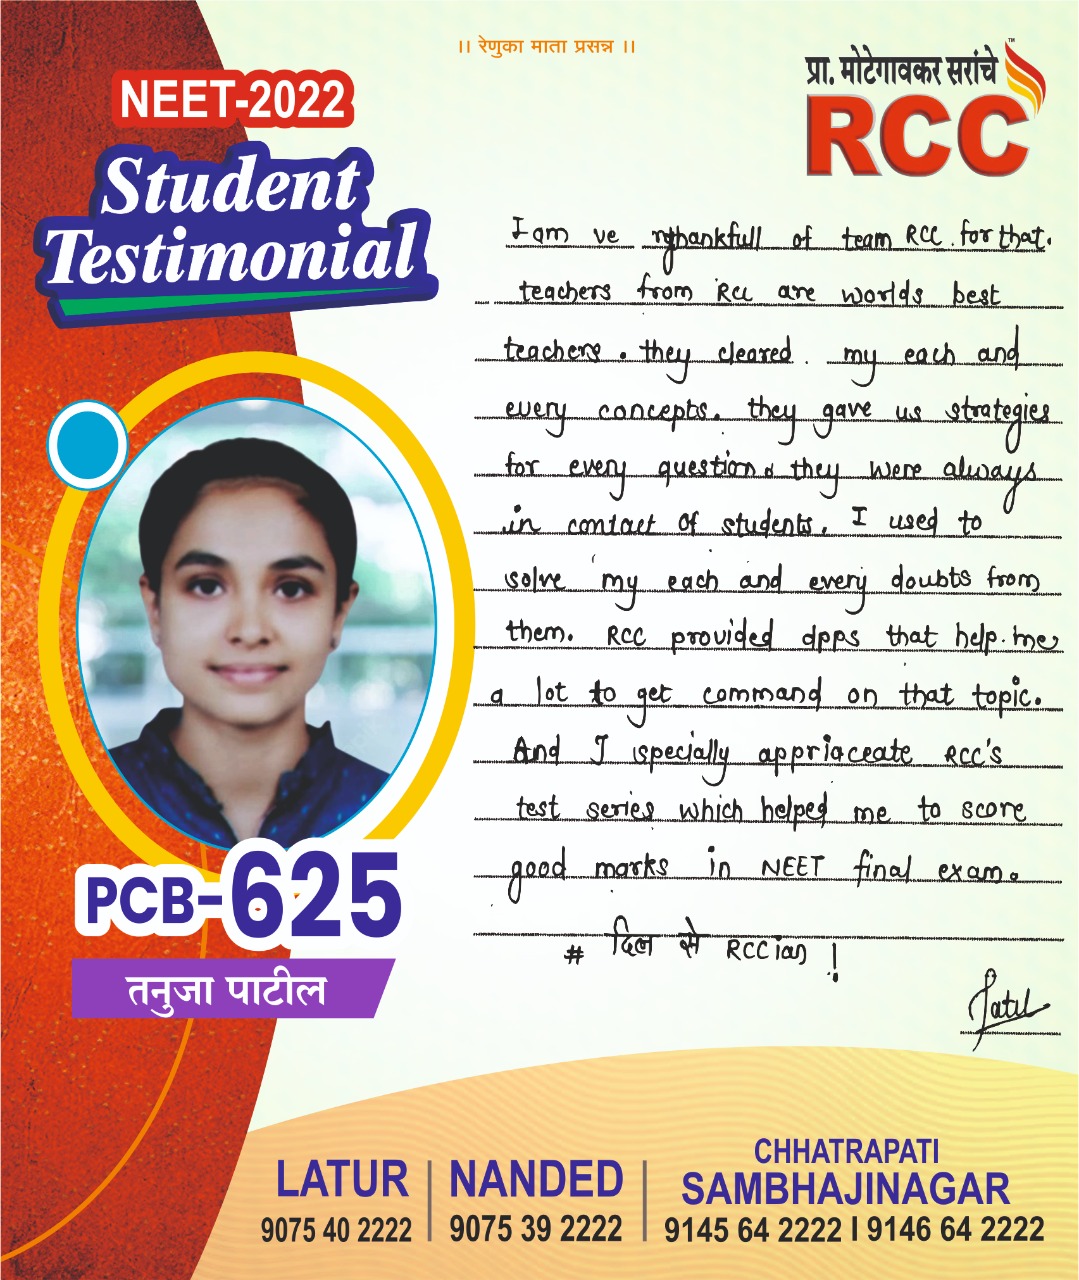 ।। रेणुका माता प्रसन्न ।।
प्रा. मोटेगावकर सरांचे
RCC
TM
NEET-2022
Student
Testimonial
I am ve rythankfull of team RCC. for that.
teachers from RCC are worlds best
teachers. they cleared. my each and
every concepts. they gave us strategies
for every question. they were always
in contact of students. I used to
solve my each and every doubts from
them. RCC provided dpps that help me
a lot to get command on that topic.
And I ispecially appriaceate RCC's
test series which helped me to score
good marks in NEET final exam.
# दिल से RCCian !
Patil
PCB-625
तनुजा पाटील
LATUR
9075 40 2222
NANDED
9075 39 2222
CHHATRAPATI
SAMBHAJINAGAR
9145 64 2222 I 9146 64 2222